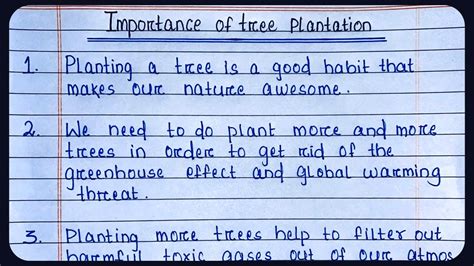 Importance of tree Plantation
1. Planting a tree is a good habit that
makes our nature awesome.
2. We need to do plant more and more
trees in order to get rid of the
greenhouse effect and global warming
threat.
3. Planting more trees help to filter out
harmful toxic gases out of our atmos